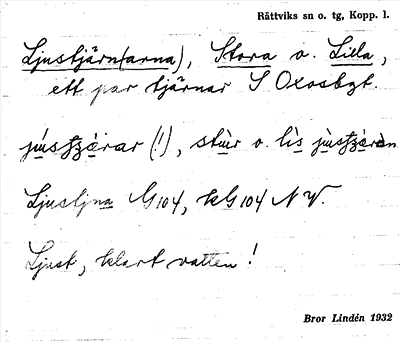 Rättviks sn o. tg, Kopp. l.
Ljustjärn(arna), Stora o. Lilla,
ett par tjärnar S Oxosbgt.
(!), stùr o. lìs
Ljustjna G104, kG104 NV.
Ljust, klart vatten!
Bror Lindén 1932